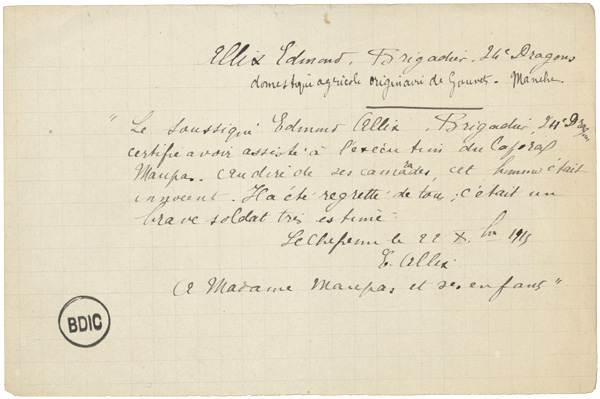 Allix Edmond. Brigadier. 24e Dragons
domestique agricole originaire de Gouvets. Manche.
" Le soussigné Edmond Allix. Brigadier, 24e Dragons
certifie avoir assisté à l'exécution du Caporal
Maupas. Au dire de ses camarades, cet homme était
innocent. Il a été regretté de tous, c'était un
brave soldat très estimé.
Le Chefresne le 22 Xbre 1915
E. Allix
A Madame Maupas et ses enfants "
BDIC